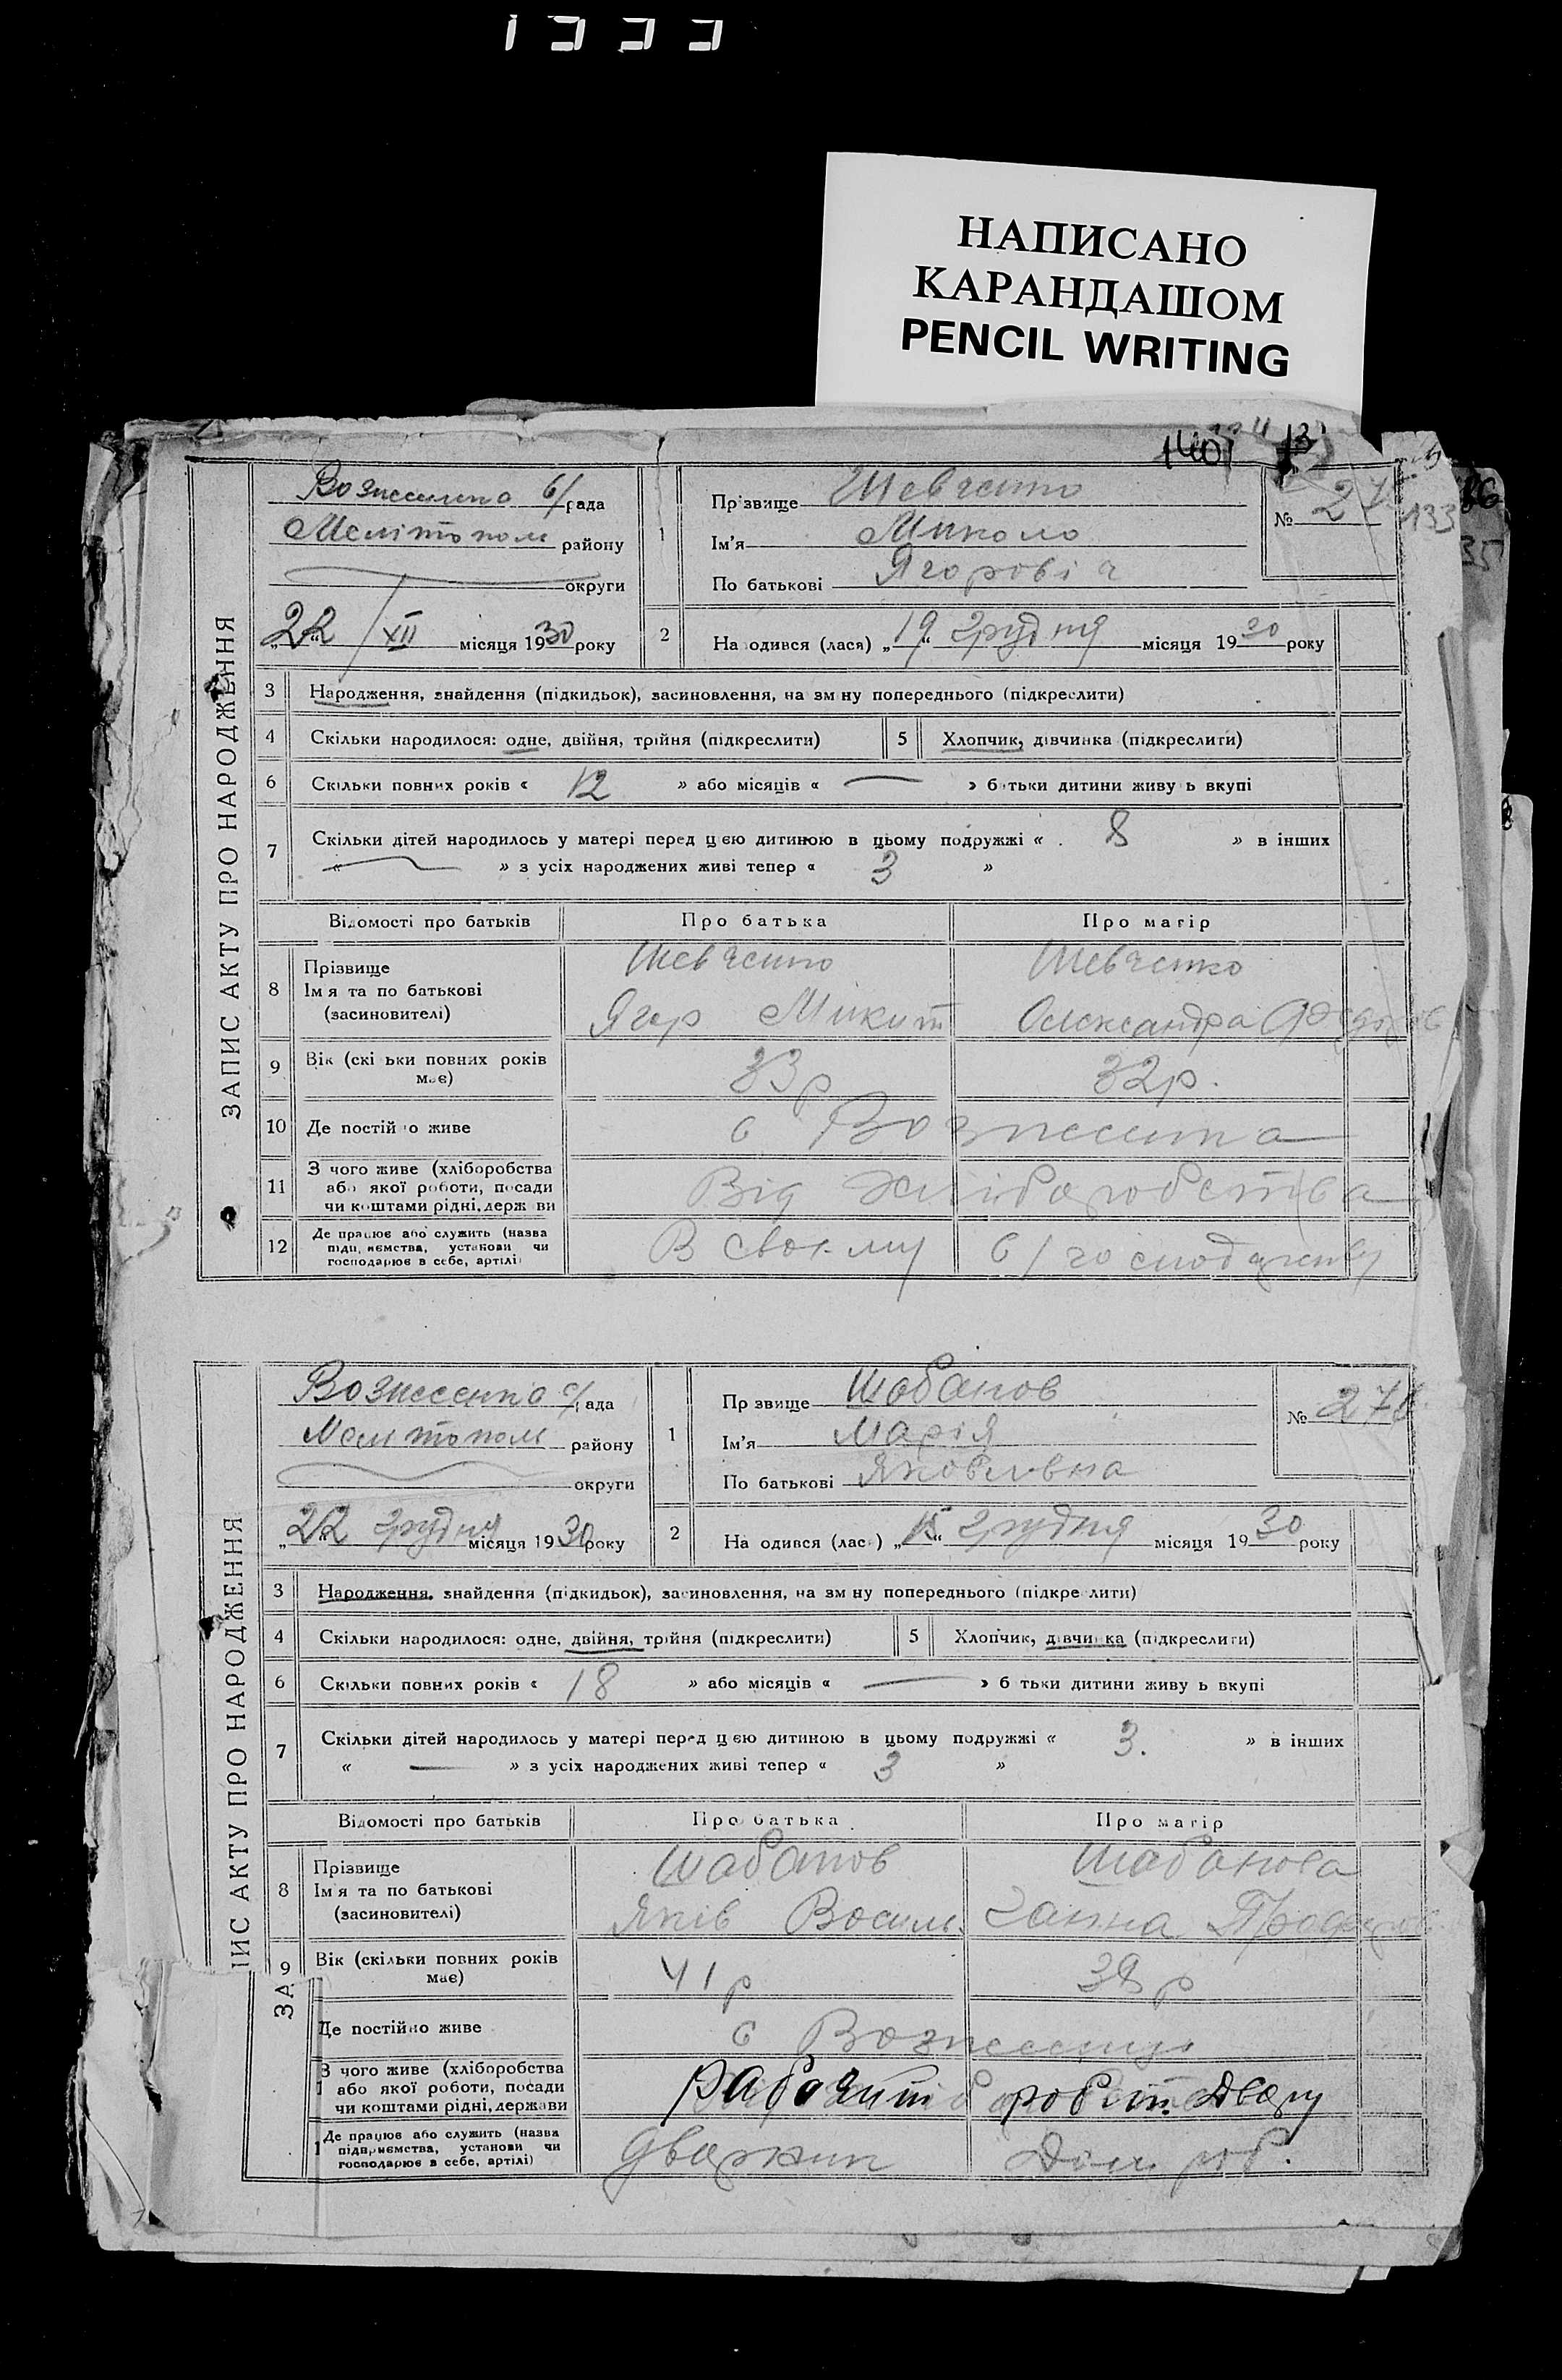 НАПИСАНО
КАРАНДАШОМ
PENCIL WRITING
ЗАПИС АКТУ ПРО НАРОДЖЕННЯ
рада
Мелітопол району
округи
22 / XII місяця 1930 року
1 Прізвище Шевченко
Ім'я Миколо
По батькові Ягоровіч
№ 27
133
2 На одився (лася) „19“ Грудня місяця 1930 року
3 Народження, знайдення (підкидьок), засиновлення, на зм ну попереднього (підкреслити)
4 Скільки народилося: одне, двійня, трійня (підкреслити) 5 Хлопчик, дівчинка (підкреслити)
6 Скільки повних років « 12 » або місяців « — » б тьки дитини живу ь вкупі
7 Скільки дітей народилось у матері перед цією дитиною в цьому подружжі « 8 » в інших
« — » з усіх народжених живі тепер « 3 »
Відомості про батьків Про батька Про матір
8 Прізвище Шевченко Шевченко
Ім я та по батькові
(засиновителі) Ягор Микит Олександра
9 Вік (скі ьки повних років
має) 33 р 32 р.
10 Де постій о живе с Вознесенка
11 З чого живе (хліборобства
або якої роботи, посади
чи коштами рідні, держ ви Від хліборобства
12 Де працює або служить (назва
підп, иємства, установи чи
господарює в себе, артілі) В своєму с/господарству
ИС АКТУ ПРО НАРОДЖЕННЯ
ЗА
Вознесенко с/ рада
Мелитопол району
округи
„22“ Грудня місяця 1930 року
1 Пр звище Шабанов
Ім'я Марія
По батькові Яковлевна
№ 276
2 На одився (лас ) „15“ Грудня місяця 1930 року
3 Народження, знайдення (підкидьок), засиновлення, на зм ну попереднього (підкре лити)
4 Скільки народилося: одне, двійня, трійня (підкреслити) 5 Хлопчик, дівчинка (підкреслити)
6 Скільки повних років « 18 » або місяців « — » б тьки дитини живу ь вкупі
7 Скільки дітей народилось у матері перед цією дитиною в цьому подружжі « 3. » в інших
« — » з усіх народжених живі тепер « 3 »
Відомості про батьків Про батька Про матір
8 Прізвище Шабанов Шабанова
Ім я та по батькові
(засиновителі) Яків Василь. Ганна
9 Вік (скільки повних років
має) 41 р 38 р
Де постійно живе с Вознесенка
З чого живе (хліборобства
або якої роботи, посади
чи коштами рідні, держави Рабочит робіт. двору
Де працює або служить (назва
підприємства, установи чи
господарює в себе, артілі) Дворник Дом роб.